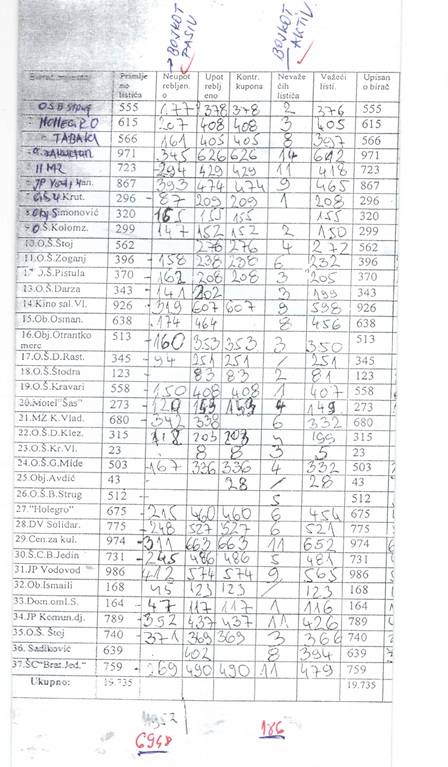 → BOJKOT PASIV
BOJKOT AKTIV
Biračko Primlje no listića Neupot rebljen. o Upot reblj eno Kontr. kupona Nevaže ćih listića Važeći listi. Upisan o birač
O.Š.B Strug 555 177 378 378 2 376 555
615 207 408 408 3 405 615
TABAKI 566 161 405 405 8 397 566
971 345 626 626 14 612 971
II MZ 723 294 429 429 11 418 723
JP Vodov. 867 393 474 474 9 465 867
Krut. 296 - 87 209 209 1 208 296
Obj Simonović 320 165 155 155 155 320
O.Š.Kolomz. 299 147 152 152 2 150 299
10.O.Š.Štoj 562 276 276 4 272 562
11.O.Š.Zoganj 396 - 158 238 238 6 232 396
O.Š.Pistula 370 - 162 208 208 3 205 370
13.O.Š.Darza 343 - 141 202 3 199 343
14.Kino sal.Vl. 926 319 607 607 9 598 926
15.Ob.Osman. 638 174 464 8 456 638
16.Obj.Otrantko merc 513 -160 353 353 3 350 513
17.O.Š.D.Rast. 345 - 94 251 251 / 251 345
18.O.Š.Štodra 123 83 83 2 81 123
19.O.Š.Kravari 558 150 408 408 1 407 558
20.Motel"Šas" 273 120 153 153 4 149 273
21.MZ K.Vlad. 680 342 338 6 332 680
22.O.Š.D.Klez. 315 118 203 203 199 315
23.O.Š.Kr.Vl. 23 8 8 3 5 23
24.O.Š.G.Mide 503 -167 336 336 4 332 503
25.Obj.Avdić 43 28 / 28 43
26.O.Š.B.Strug 512 5 512
27."Holegro" 675 - 215 460 460 6 454 675
28.DV Solidar. 775 - 248 527 527 6 521 775
29.Cen.za kul. 974 - 311 663 663 11 652 974
30.Š.C.B.Jedin 731 -245 486 486 5 481 731
31.JP Vodovod 986 412 574 574 9 565 986
32.Ob.Ismaili 168 45 123 123 / 123 168
33.Dom.oml.S. 164 - 47 117 117 1 116 164
34.JP Komun.dj. 789 - 352 437 437 11 426 789
35.O.Š. Štoj 740 - 371 369 369 3 366 740
36. Sadiković 639 402 8 394 639
37.ŠC"Brat.Jed." 759 - 269 490 490 11 479 759
Ukupno: 19.735 19.735
6948 186